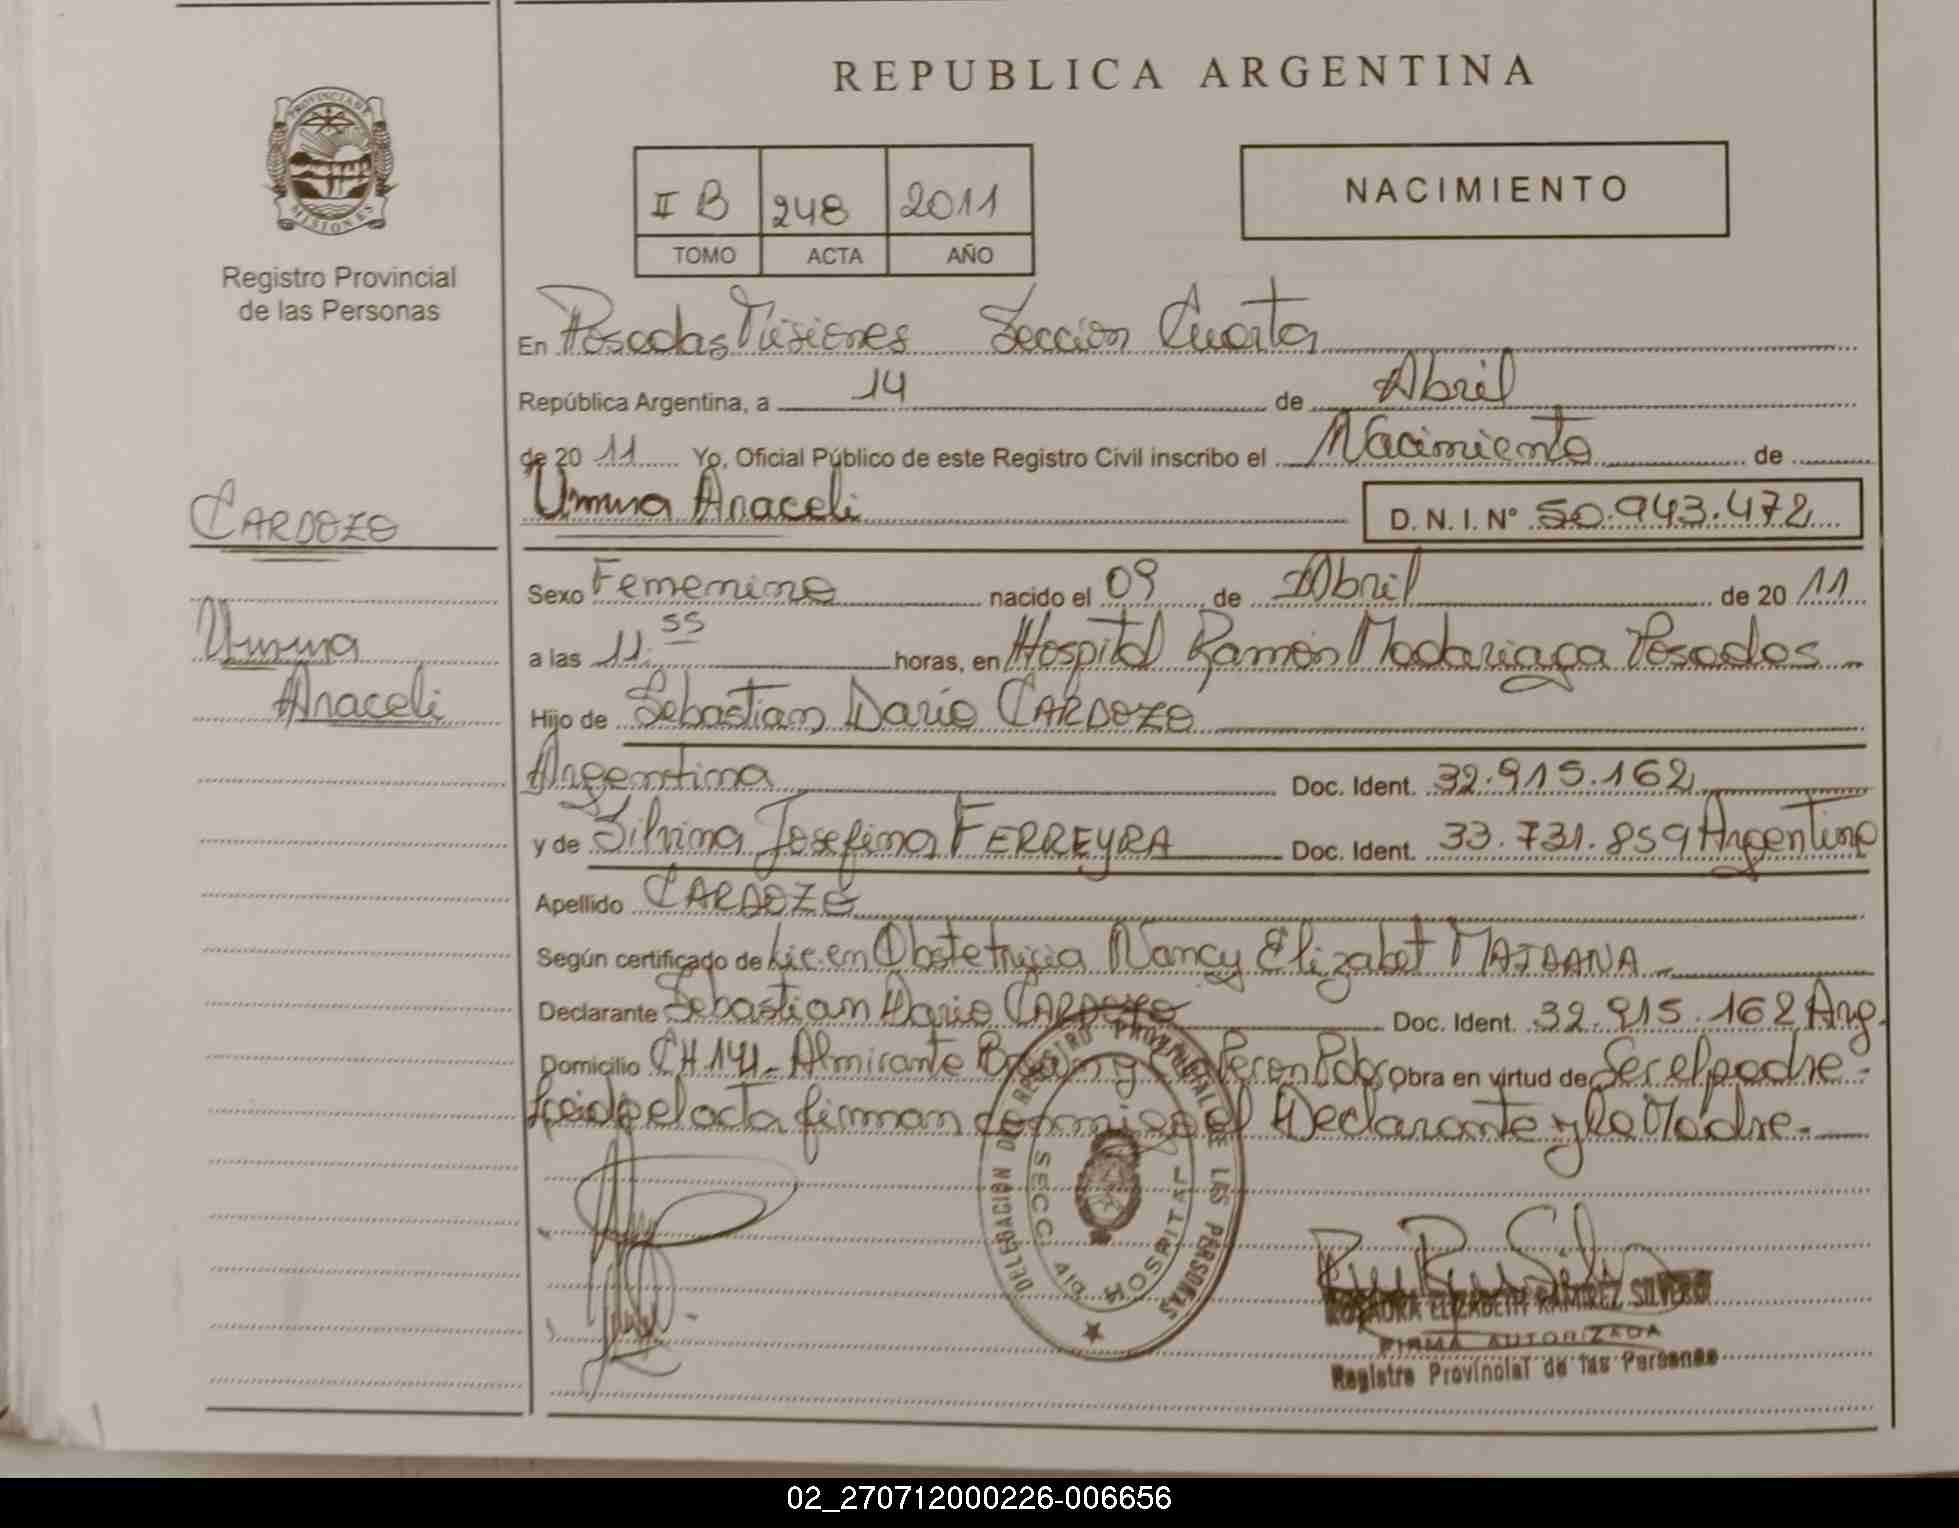 PROVINCIA DE
MISIONES
Registro Provincial
de las Personas
CARDOZO
Umma
Araceli
REPUBLICA ARGENTINA
II B 248 2011
TOMO ACTA AÑO
NACIMIENTO
En Posadas Misiones Sección Cuarta
República Argentina, a 14 de Abril
de 20 11 Yo, Oficial Público de este Registro Civil inscribo el Nacimiento de
Umma Araceli D. N. I. Nº 50.943.472
Sexo Femenino nacido el 09 de Abril de 20 11
a las 11:55 horas, en Hospital Ramón Madariaga Posadas
Hijo de Sebastian Dario CARDOZO
Argentina Doc. Ident. 32.915.162
y de Silvina Josefina FERREYRA Doc. Ident. 33.731.859 Argentina
Apellido CARDOZO
Según certificado de Lic. en Obstetricia Nancy Elizabet MAIDANA
Declarante Sebastian Dario CARDOZO Doc. Ident. 32.915.162 Arg.
Domicilio CH 141 - Almirante Brown y Peron Pdas Obra en virtud de Ser el padre -
Leida el acta firman conmigo el Declarante y la Madre -
DELEGACION DE REGISTRO PROVINCIAL DE LAS PERSONAS
SECC. 4ta HOSPITAL
ROSAURA ELIZABETH RAMIREZ SILVERO
FIRMA AUTORIZADA
Registro Provincial de las Personas
02_270712000226-006656